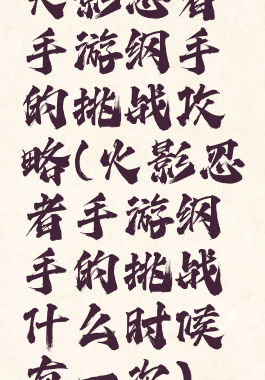 火影忍者
手游纲手
的挑战攻
略(火影忍
者手游纲
手的挑战
什么时候
有一次)